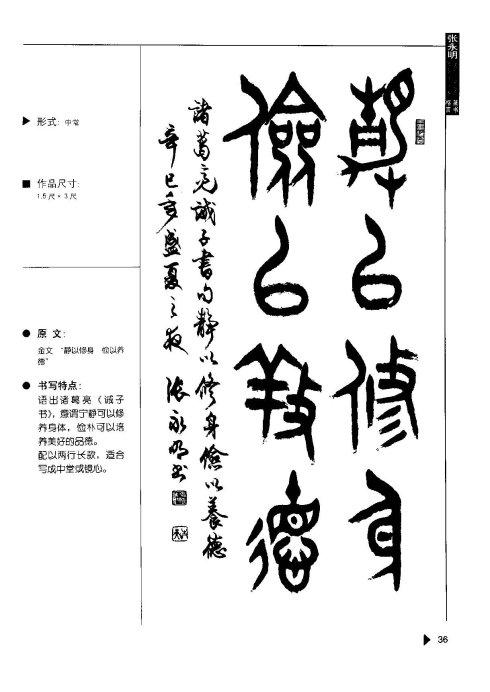 张永明
篆书
格言
▶ 形式: 中堂
■ 作品尺寸:
1.5尺×3尺
● 原文:
金文 “静以修身 俭以养
德”
● 书写特点:
语出诸葛亮《诫子
书》,意谓宁静可以修
养身体,俭朴可以培
养美好的品德。
配以两行长款,适合
写成中堂或镜心。
静以修身
儉以養德
諸葛亮誡子書句靜以修身儉以養德
辛巳年盛夏之夜 張永明書
▶ 36